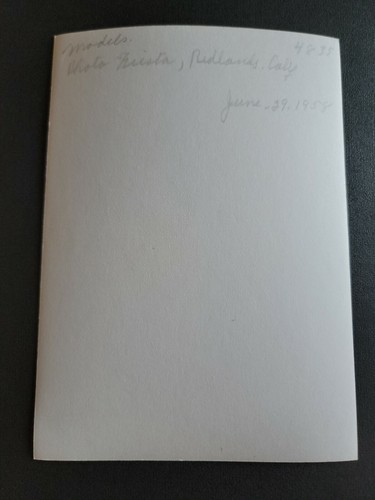 Models.
Photo Fiesta, Redlands, Calif
June. 29. 1958